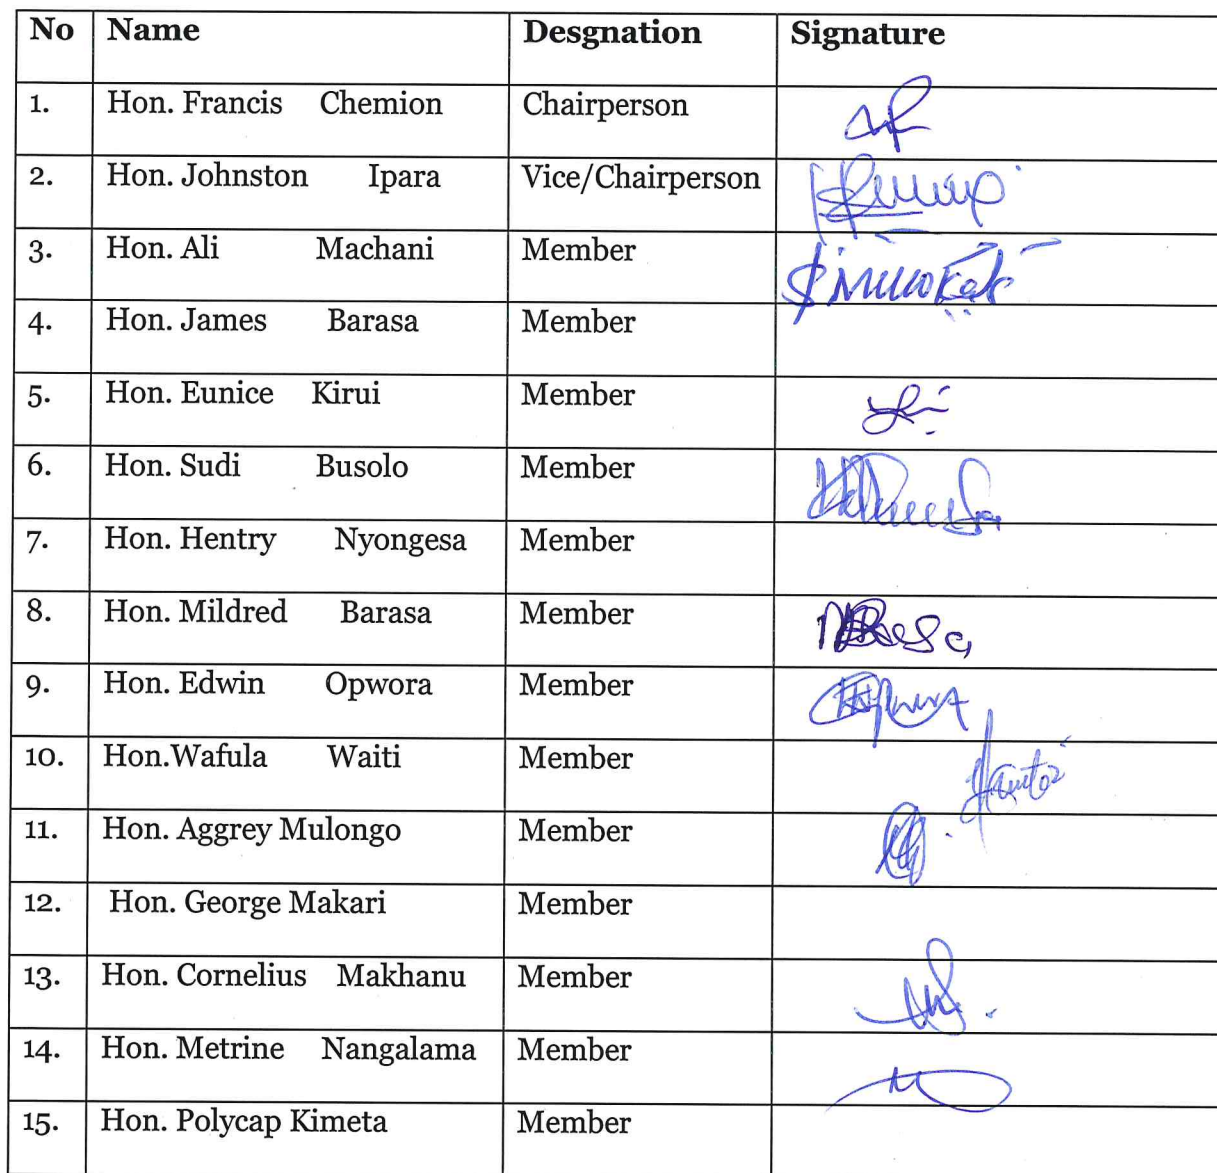 No Name Desgnation Signature
1. Hon. Francis Chemion Chairperson
2. Hon. Johnston Ipara Vice/Chairperson
3. Hon. Ali Machani Member
4. Hon. James Barasa Member
5. Hon. Eunice Kirui Member
6. Hon. Sudi Busolo Member
7. Hon. Hentry Nyongesa Member
8. Hon. Mildred Barasa Member
9. Hon. Edwin Opwora Member
10. Hon.Wafula Waiti Member
11. Hon. Aggrey Mulongo Member
12. Hon. George Makari Member
13. Hon. Cornelius Makhanu Member
14. Hon. Metrine Nangalama Member
15. Hon. Polycap Kimeta Member